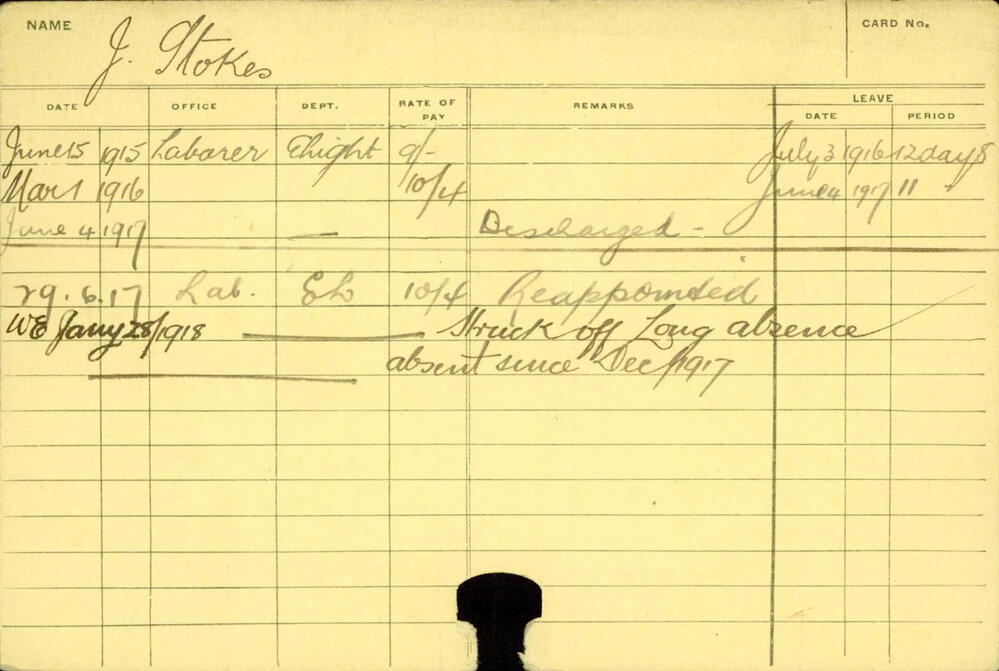 NAME J. Stokes CARD No.
DATE OFFICE DEPT. RATE OF PAY REMARKS LEAVE
DATE PERIOD
June 15 1915 Laborer Elight 9/- July 3 1916 12 days
Mar 1 1916 10/4 June 4 1917 11 "
June 4 1917 — Discharged -
29.6.17 Lab. EL 10/4 Reappointed
WE Jany 28/1918 Struck off Long absence
absent since Dec/1917